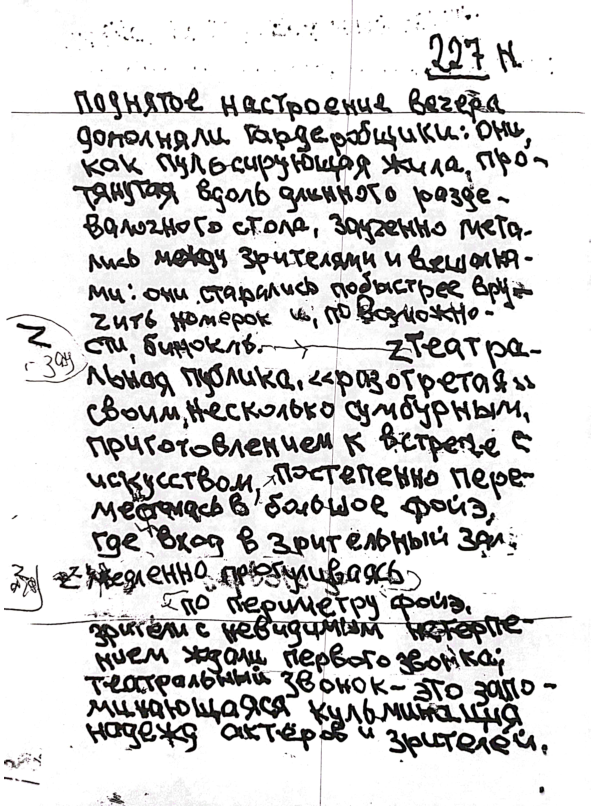 227 н
поднятое настроение вечера
дополняли гардеробщики: они,
как пульсирующая жила, про-
тянутая вдоль длинного разде-
валочного стола, заученно мета-
лись между зрителями и вешалка-
ми: они старались побыстрее вру-
чить номерок и, по возможно-
сти, бинокль. z театра-
льная публика, «разогретая»
своим, несколько сумбурным,
приготовлением к встрече с
искусством, постепенно пере-
мещалась в большое фойэ,
где вход в зрительный зал.
z медленно прогуливаясь
по периметру фойэ,
зрители с невидимым нетерпе-
нием ждали первого звонка;
театральный звонок - это запо-
минающаяся кульминация
надежд актёров и зрителей.